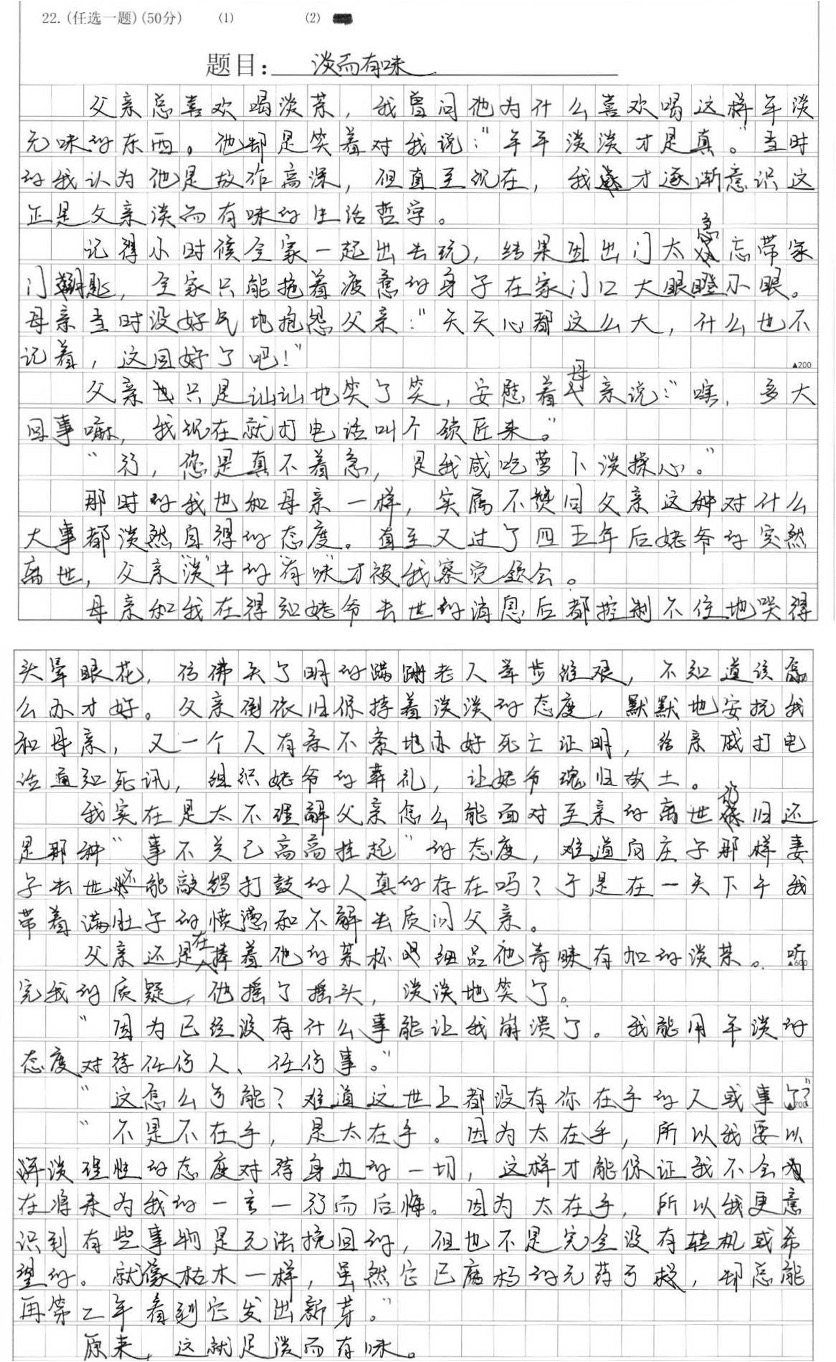 22.(任选一题)(50分) (1) (2)
题目: 淡而有味
父亲总喜欢喝淡茶，我曾问他为什么喜欢喝这样平淡
无味的东西。他却是笑着对我说："平平淡淡才是真。"当时
的我认为他是故作高深，但直至现在，我才逐渐意识这
正是父亲淡而有味的生活哲学。
记得小时候全家一起出去玩，结果因出门太急忘带家
门钥匙，全家只能拖着疲惫的身子在家门口大眼瞪小眼。
母亲当时没好气地抱怨父亲："天天心都这么大，什么也不
记着，这回好了吧！"
▲200
父亲也只是讪讪地笑了笑，安慰着母亲说："嗐，多大
回事嘛，我现在就打电话叫个锁匠来。"
"行，您是真不着急，是我咸吃萝卜淡操心。"
那时的我也和母亲一样，实属不赞同父亲这种对什么
大事都淡然自得的态度。直至又过了四五年后姥爷的突然
离世，父亲"淡"中的"有味"才被我察觉领会。
母亲和我在得知姥爷去世的消息后都控制不住地哭得
头晕眼花，彷佛失了明的蹒跚老人举步维艰，不知道该怎
么办才好。父亲倒依旧保持着淡淡的态度，默默地安抚我
和母亲，又一个人有条不紊地办好死亡证明，给亲戚打电
话通知死讯，组织姥爷的葬礼，让姥爷魂归故土。
我实在是太不理解父亲怎么能面对至亲的离世仍旧还
是那种"事不关己高高挂起"的态度，难道向庄子那样妻
子去世还能敲锣打鼓的人真的存在吗？于是在一天下午我
带着满肚子的愤懑和不解去质问父亲。
父亲还是在捧着他的茶杯细品他青睐有加的淡茶。听
完我的质疑，他摇了摇头，淡淡地笑了。
"因为已经没有什么事能让我崩溃了。我能用平淡的
态度对待任何人、任何事。"
"这怎么可能？难道这世上都没有你在乎的人或事了？"
"不是不在乎，是太在乎。因为太在乎，所以我要以
淡理性的态度对待身边的一切，这样才能保证我不会
在将来为我的一言一行而后悔。因为太在乎，所以我更意
识到有些事物是无法挽回的，但也不是完全没有转机或希
望的。就像枯木一样，虽然它已腐朽的无药可救，却总能
再第二年看到它发出新芽。"
原来，这就是淡而有味。